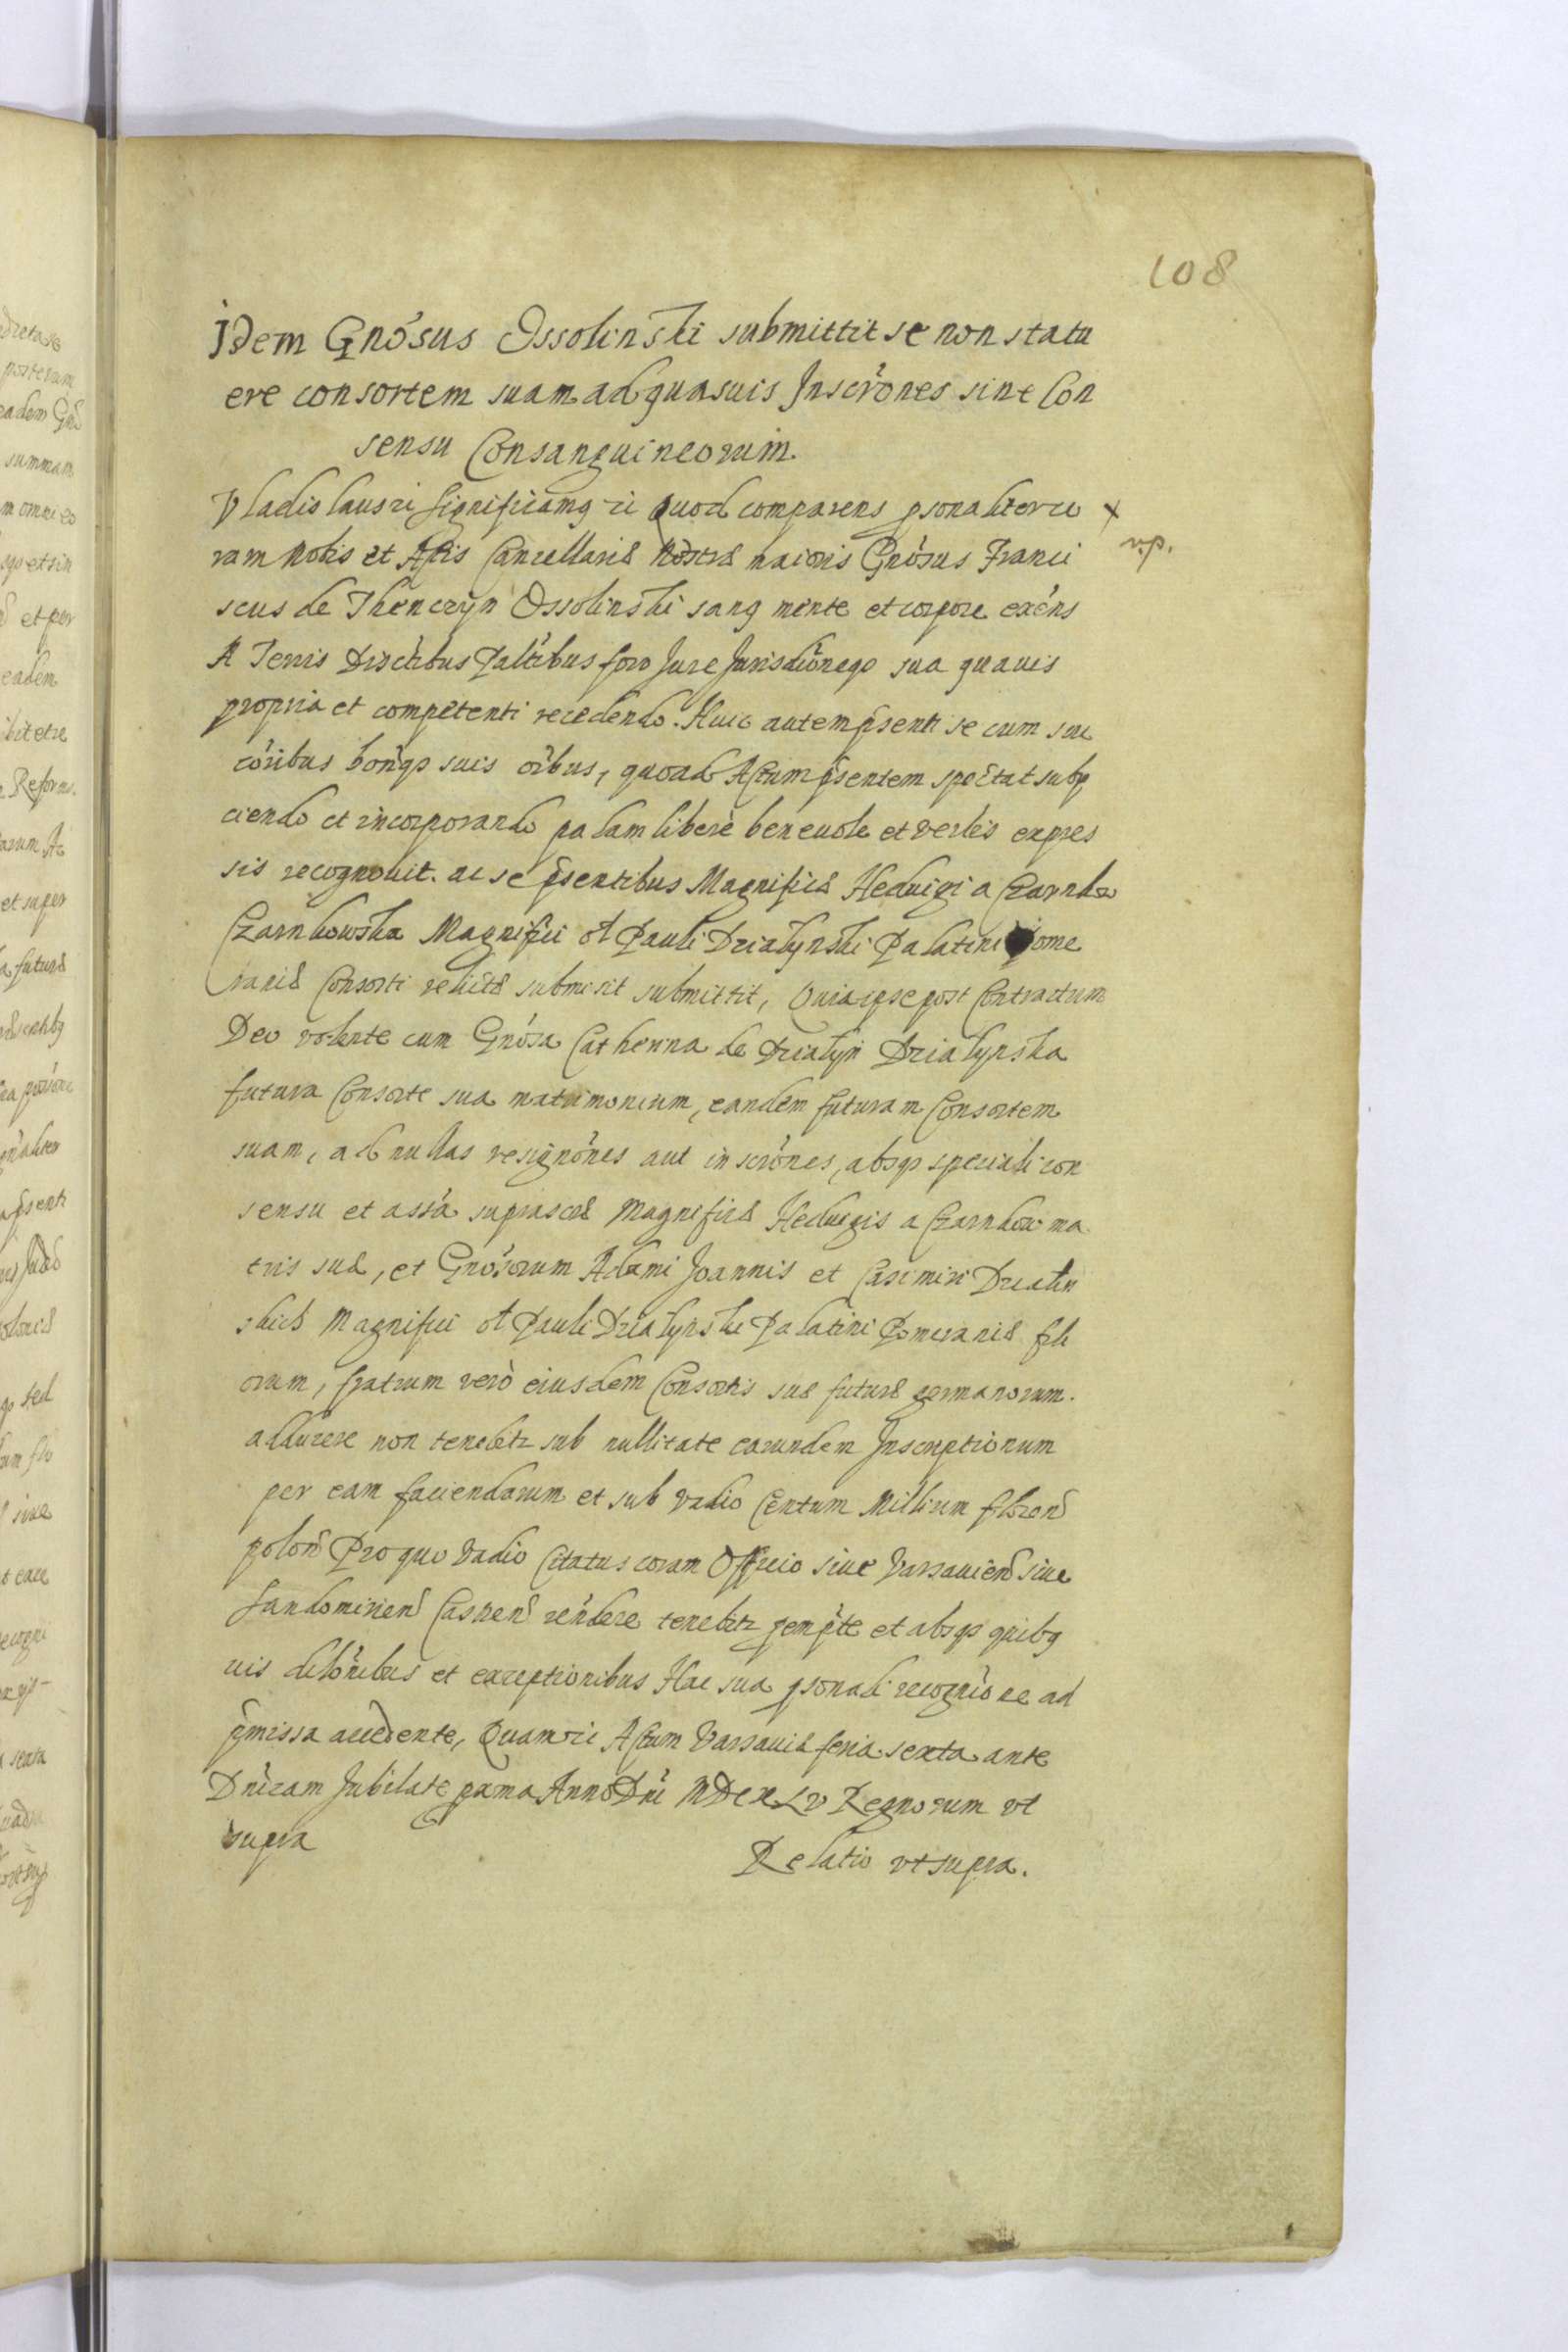 108
Idem Gnosus Ossolinski submittit se non statu
ere consortem suam ad quasuis Inscrones sine Con
sensu Consanguineorum.
Vladislaus etc significamus etc Quod comparens psonaliter co x
ram Nobis et Actis Cancellariæ Nostræ maioris Gnosus Franci v.p.
scus de Thenczyn Ossolinski sanus mente et corpore exens
A Terris Districtibus Paltibus foro Jure Jurisdioneqs sua quauis
propria et competenti recedendo. Huic autem psenti se cum suc
coribus bonisqs suis oibus, quoad Actum psentem spectat subij
ciendo et incorporando palam libere beneuole et verbis expres
sis recognouit. ac se psentibus Magnificæ Heduigi a Czarnkow
Czarnkowska Magnifici ol Pauli Dzialynski Palatini Pome
raniæ Consorti relictæ submisit submittit, Quia ipse post Contractum
Deo volente cum Gnosa Catherina de Dzialyn Dzialynska
futura Consorte sua matrimonium, eandem futuram Consortem
suam, ad nullas resignones aut inscrones, absqs speciali con
sensu et assa suprascæ Magnificæ Heduigis a Czarnkow ma
tris suæ, et Gnosorum Adami Joannis et Casimiri Dzialin
skich Magnifici ol Pauli Dzialynski Palatini Pomeraniæ fili
orum, fratrum verò eiusdem Consortis suæ futuræ germanorum.
adducere non tenebitr sub nullitate earundem Inscriptionum
per eam faciendarum et sub vadio Centum Millium floren
polon Pro quo Vadio Citatus coram Officio siue Varsauien siue
Sandomirien Castren rendere tenebitr pempte et absqs quibus
uis dilonibus et exceptionibus Hac sua psonali recognione ad
pmissa accedente, Quam etc Actum Varsauiæ feria sexta ante
Dnicam Jubilate pxma Anno Dni MDCXLV Regnorum vt
supra
Relatio vt supra.